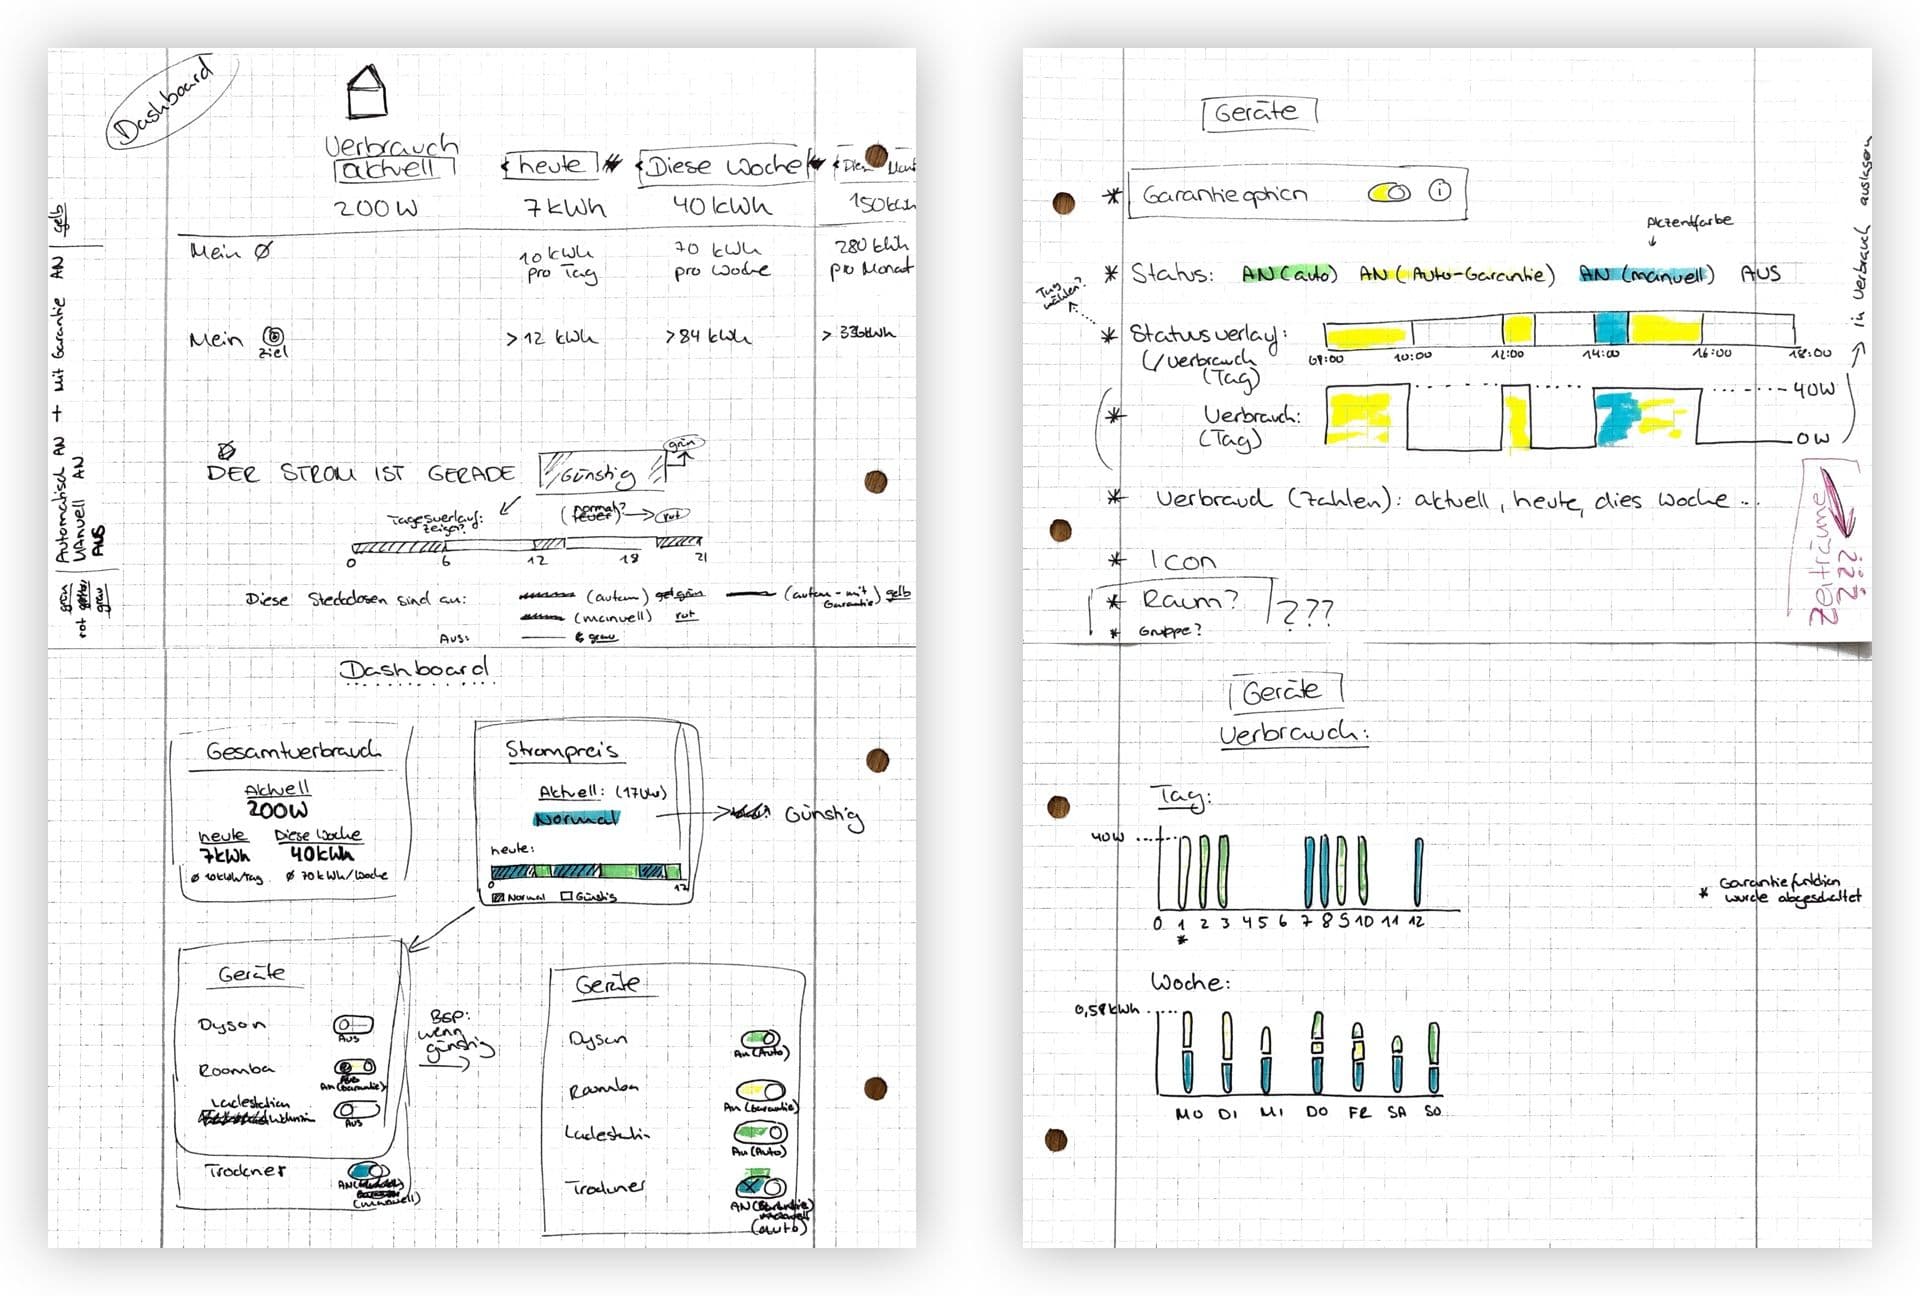 Dashboard
Verbrauch
aktuell
heute
Diese Woche
200W
7kWh
40kWh
150kWh
Mein Ø
10kWh
pro Tag
70 kWh
pro Woche
280 kWh
pro Monat
Mein
Ziel
>12 kWh
>84 kWh
> 336kWh
DER STROM IST GERADE
Günstig
grün
Tagesverlauf:
zeigen?
(normal?
teuer)
rot
0 6 12 18 21
Diese Steckdosen sind an:
(autom)
grün
(autom-mit
Garantie) gelb
(manuell) rot
Aus:
grau
grün Automatisch AN + Mit Garantie AN gelb
rot Manuell AN
grau AUS
Dashboard
Gesamtverbrauch
Aktuell
200W
heute Diese Woche
7kWh 40kWh
Ø 10kWh/Tag Ø 70kWh/Woche
Strompreis
Aktuell: (17Uhr)
Normal
Günstig
heute:
0 12
Normal Günstig
Geräte
Dyson
Aus
Roomba
An (Garantie)
Ladestation
Aus
Trockner
AN
(manuell)
BSP:
wenn
günstig
Geräte
Dyson
An (Auto)
Roomba
An (Garantie)
Ladestation
An (Auto)
Trockner
AN
(auto)
Geräte
* Garantieoption i
Akzentfarbe
* Status: AN (auto) AN (Auto-Garantie) AN (manuell) AUS
Tag
wählen?
* Statusverlauf:
(/Verbrauch
(Tag)
10:00 12:00 14:00 16:00 18:00
* Verbrauch:
(Tag)
40W
0W
in Verbrauch auslassen
* Verbrauch (Zahlen): aktuell, heute, dies Woche...
Zeiträume
???
* Icon
* Raum?
???
* Gruppe?
Geräte
Verbrauch:
Tag:
40W
0 1 2 3 4 5 6 7 8 9 10 11 12
*
* Garantiefunktion
wurde abgeschaltet
Woche:
0,58kWh
MO DI MI DO FR SA SO